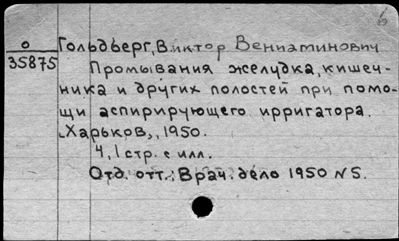 6
О
35875
Гольдберг, Виктор Вениаминович
Промывания желудка, кишеч-
ника и других полостей при помо-
щи аспирирующего ирригатора.
„Харьков", 1950.
4, 1 стр. с илл.
Отд. отт.: Врач. дело 1950 N5.